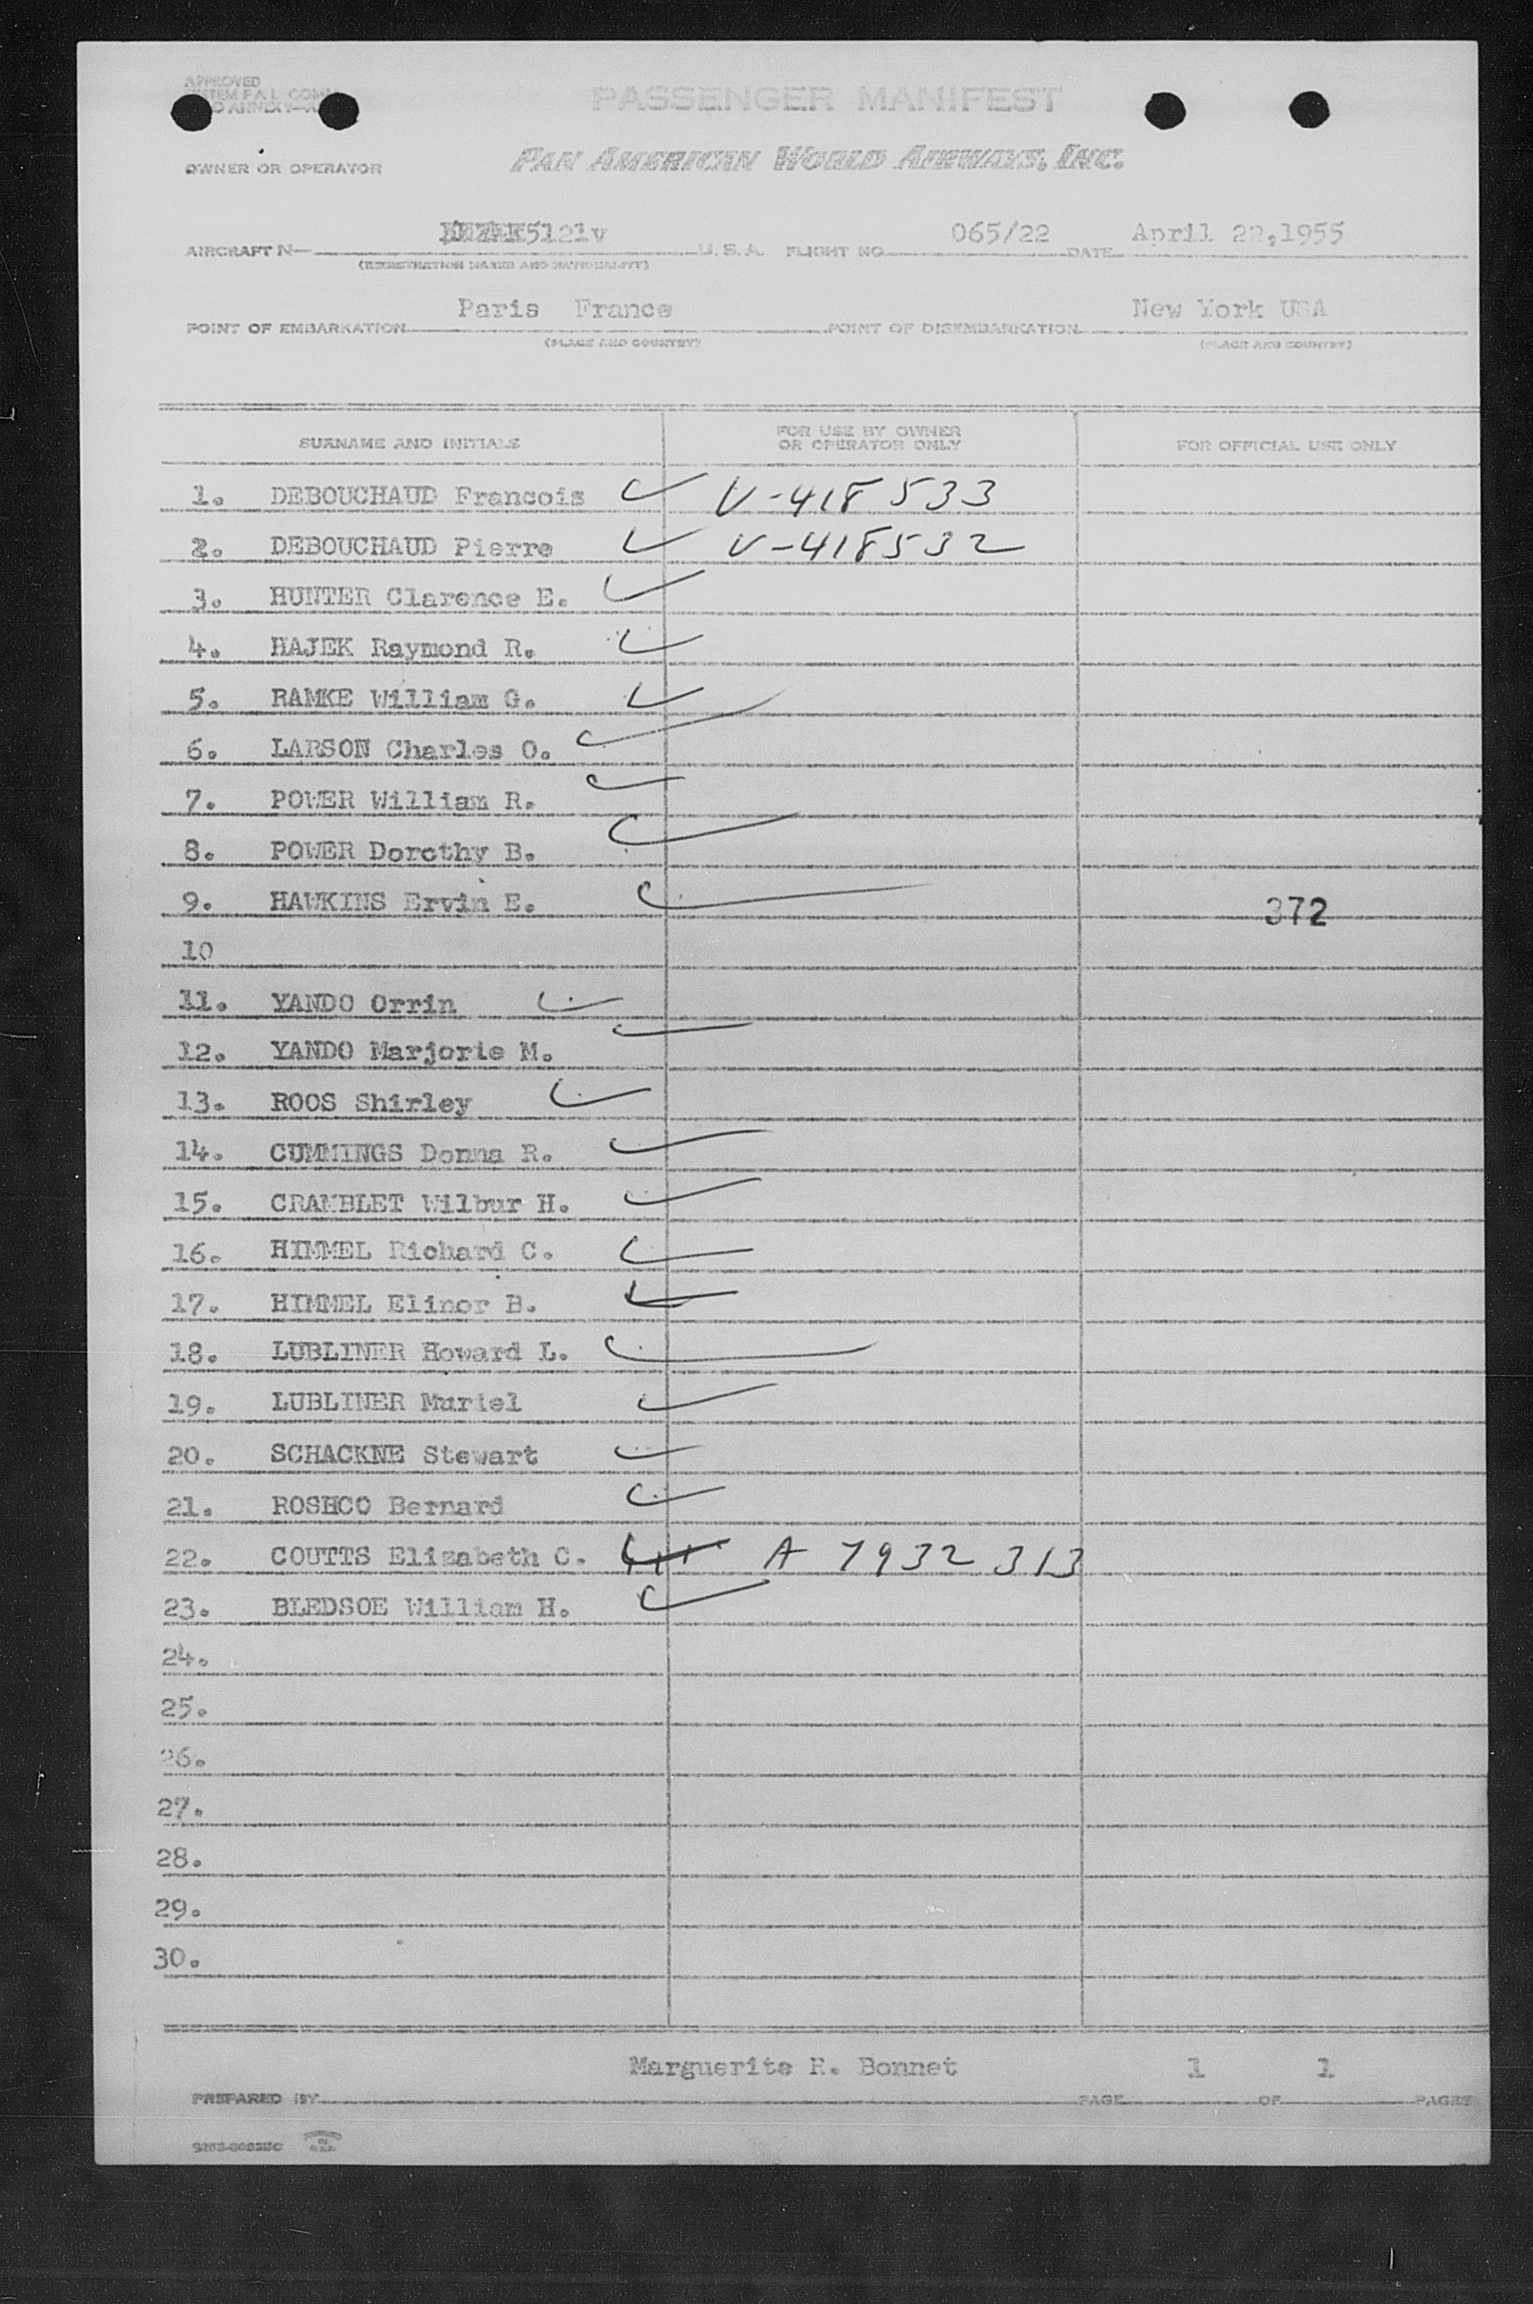 APPROVED
PASSENGER MANIFEST
PAN AMERICAN WORLD AIRWAYS, INC.
OWNER OR OPERATOR
AIRCRAFT N— 5121v U.S.A. FLIGHT NO. 065/22 DATE April 22,1955
(REGISTRATION MARKS AND NATIONALITY)
POINT OF EMBARKATION Paris France POINT OF DISEMBARKATION New York USA
(PLACE AND COUNTRY) (PLACE AND COUNTRY)
SURNAME AND INITIALS FOR USE BY OWNER OR OPERATOR ONLY FOR OFFICIAL USE ONLY
1. DEBOUCHAUD Francois ✓ V-418533
2. DEBOUCHAUD Pierre ✓ V-418532
3. HUNTER Clarence E. ✓
4. HAJEK Raymond R. ✓
5. RAMKE William G. ✓
6. LARSON Charles O. ✓
7. POWER William R. ✓
8. POWER Dorothy B. ✓
9. HAWKINS Ervin E. ✓ 372
10
11. YANDO Orrin ✓
12. YANDO Marjorie M. ✓
13. ROOS Shirley ✓
14. CUMMINGS Donna R. ✓
15. CRAMBLET Wilbur H. ✓
16. HIMMEL Richard C. ✓
17. HIMMEL Elinor B. ✓
18. LUBLINER Howard L. ✓
19. LUBLINER Muriel ✓
20. SCHACKNE Stewart ✓
21. ROSHCO Bernard ✓
22. COUTTS Elizabeth C. ✓ A 7932 313
23. BLEDSOE William H. ✓
24.
25.
26.
27.
28.
29.
30.
PREPARED BY Marguerite R. Bonnet PAGE 1 OF 1 PAGES